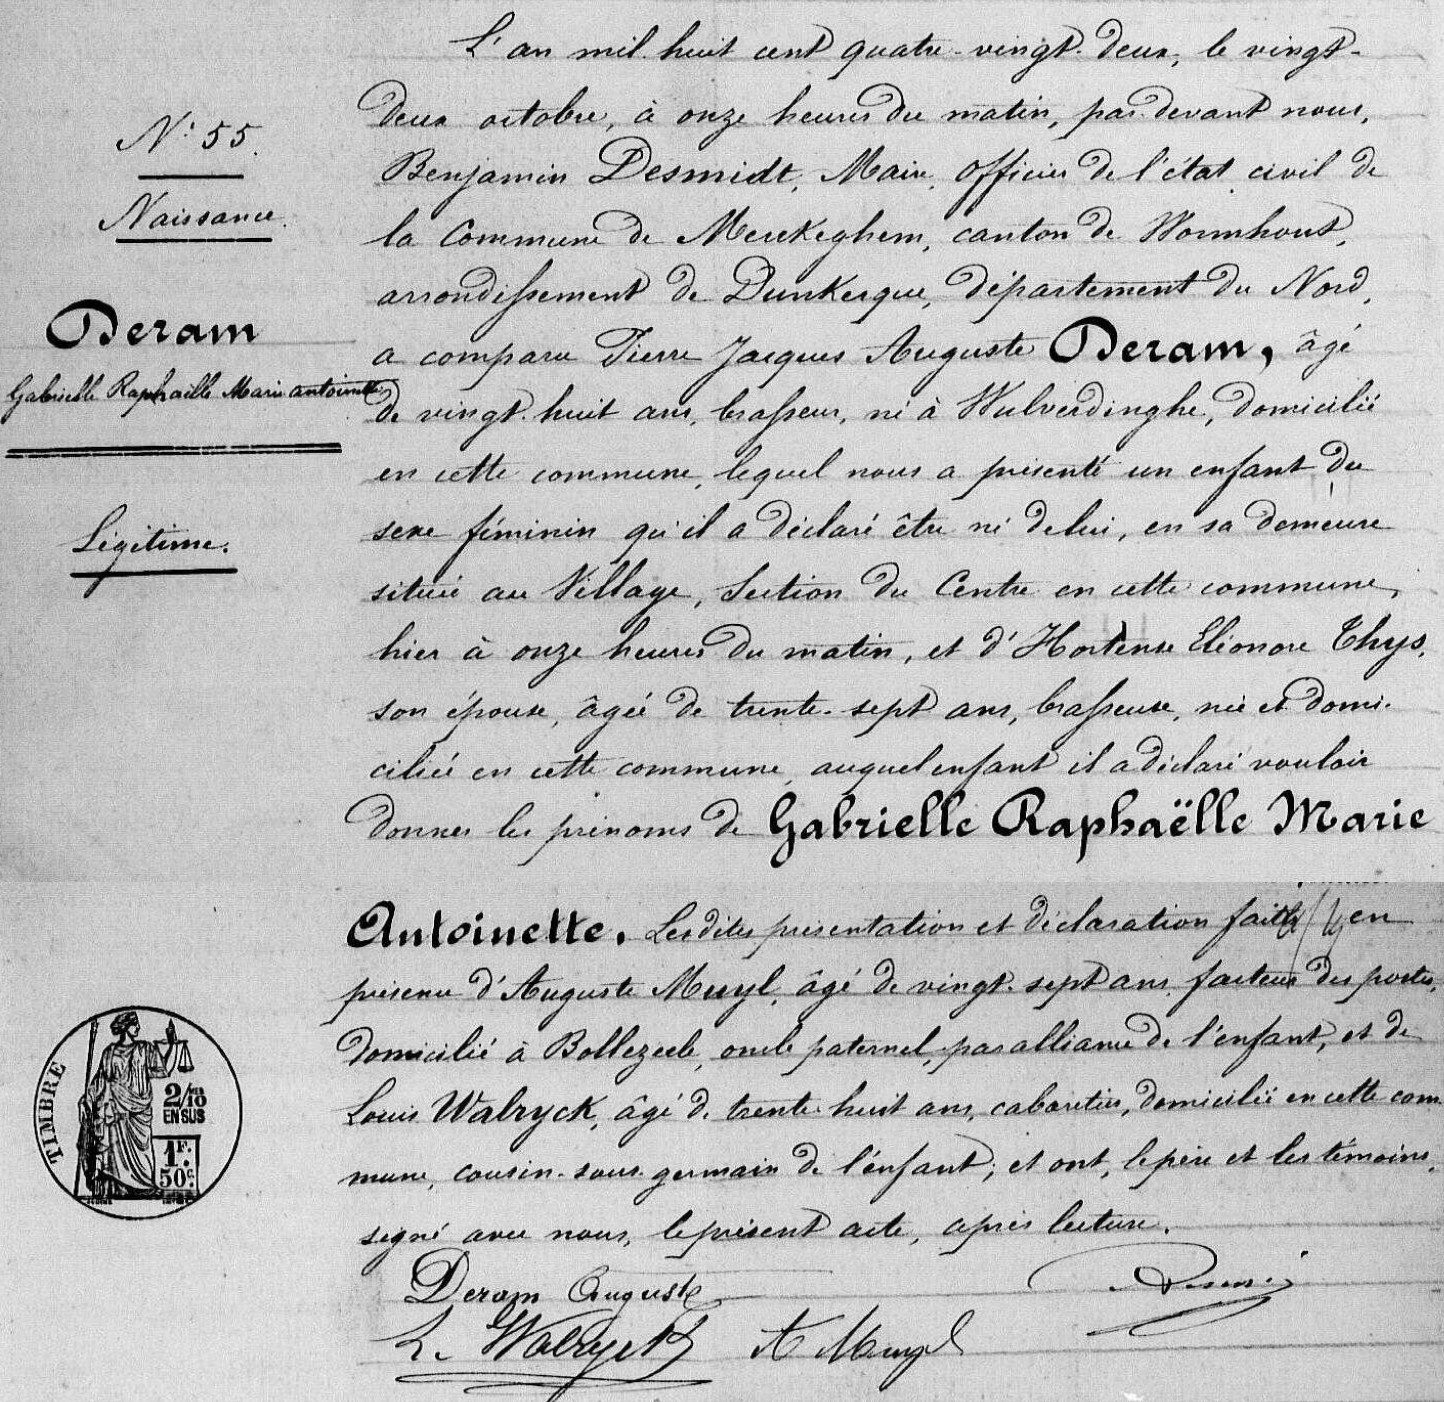 N° 55.
Naissance.
Deram
Gabrielle Raphaëlle Marie antoinette
Légitime.
L'an mil huit cent quatre-vingt-deux, le vingt-
deux octobre, à onze heures du matin, par devant nous,
Benjamin Desmidt, Maire, officier de l'état civil de
la Commune de Merckeghem, canton de Wormhout,
arrondissement de Dunkerque, département du Nord,
a comparu Pierre Jacques Auguste Deram, âgé
de vingt-huit ans, brasseur, né à Wulverdinghe, domicilié
en cette commune, lequel nous a présenté un enfant du
sexe féminin qu'il a déclaré être né de lui, en sa demeure
située au Village, Section du Centre en cette commune,
hier à onze heures du matin, et d'Hortense Eléonore Thys,
son épouse, âgée de trente-sept ans, brasseuse, née et domi-
ciliée en cette commune, auquel enfant il a déclaré vouloir
donner les prénoms de Gabrielle Raphaëlle Marie
Antoinette. Lesdites présentation et déclaration faites en
présence d'Auguste Meuyl, âgé de vingt-sept ans, facteur des postes,
domicilié à Bollezeele, oncle paternel, par alliance de l'enfant, et de
Louis Walryck, âgé de trente-huit ans, cabaretier, domicilié en cette com-
mune, cousin-sous-germain de l'enfant; et ont, le père et les témoins,
signé avec nous, le présent acte, après lecture.
Deram Auguste
L. Walryck A Meuyl
TIMBRE
2/10
EN SUS
1F.
50c.